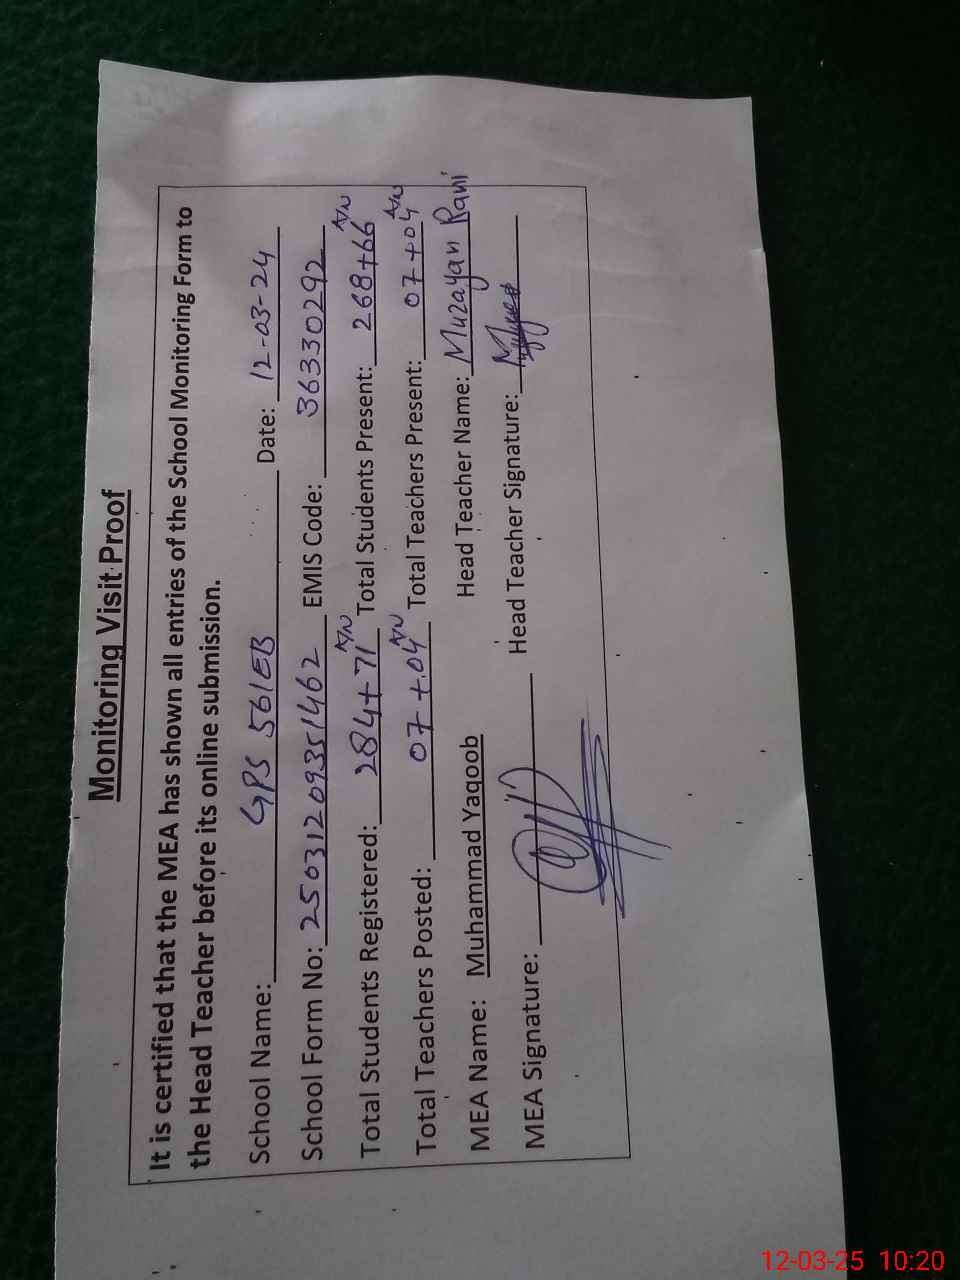 Monitoring Visit Proof
It is certified that the MEA has shown all entries of the School Monitoring Form to
the Head Teacher before its online submission.
School Name: GPS 561EB Date: 12-03-24
School Form No: 25031209351462 EMIS Code: 36330292
Total Students Registered: 284+71 A/N Total Students Present: 268+66 A/N
Total Teachers Posted: 07+04 A/N Total Teachers Present: 07+04 A/N
MEA Name: Muhammad Yaqoob Head Teacher Name: Muzayan Rani
MEA Signature: Head Teacher Signature:
12-03-25 10:20